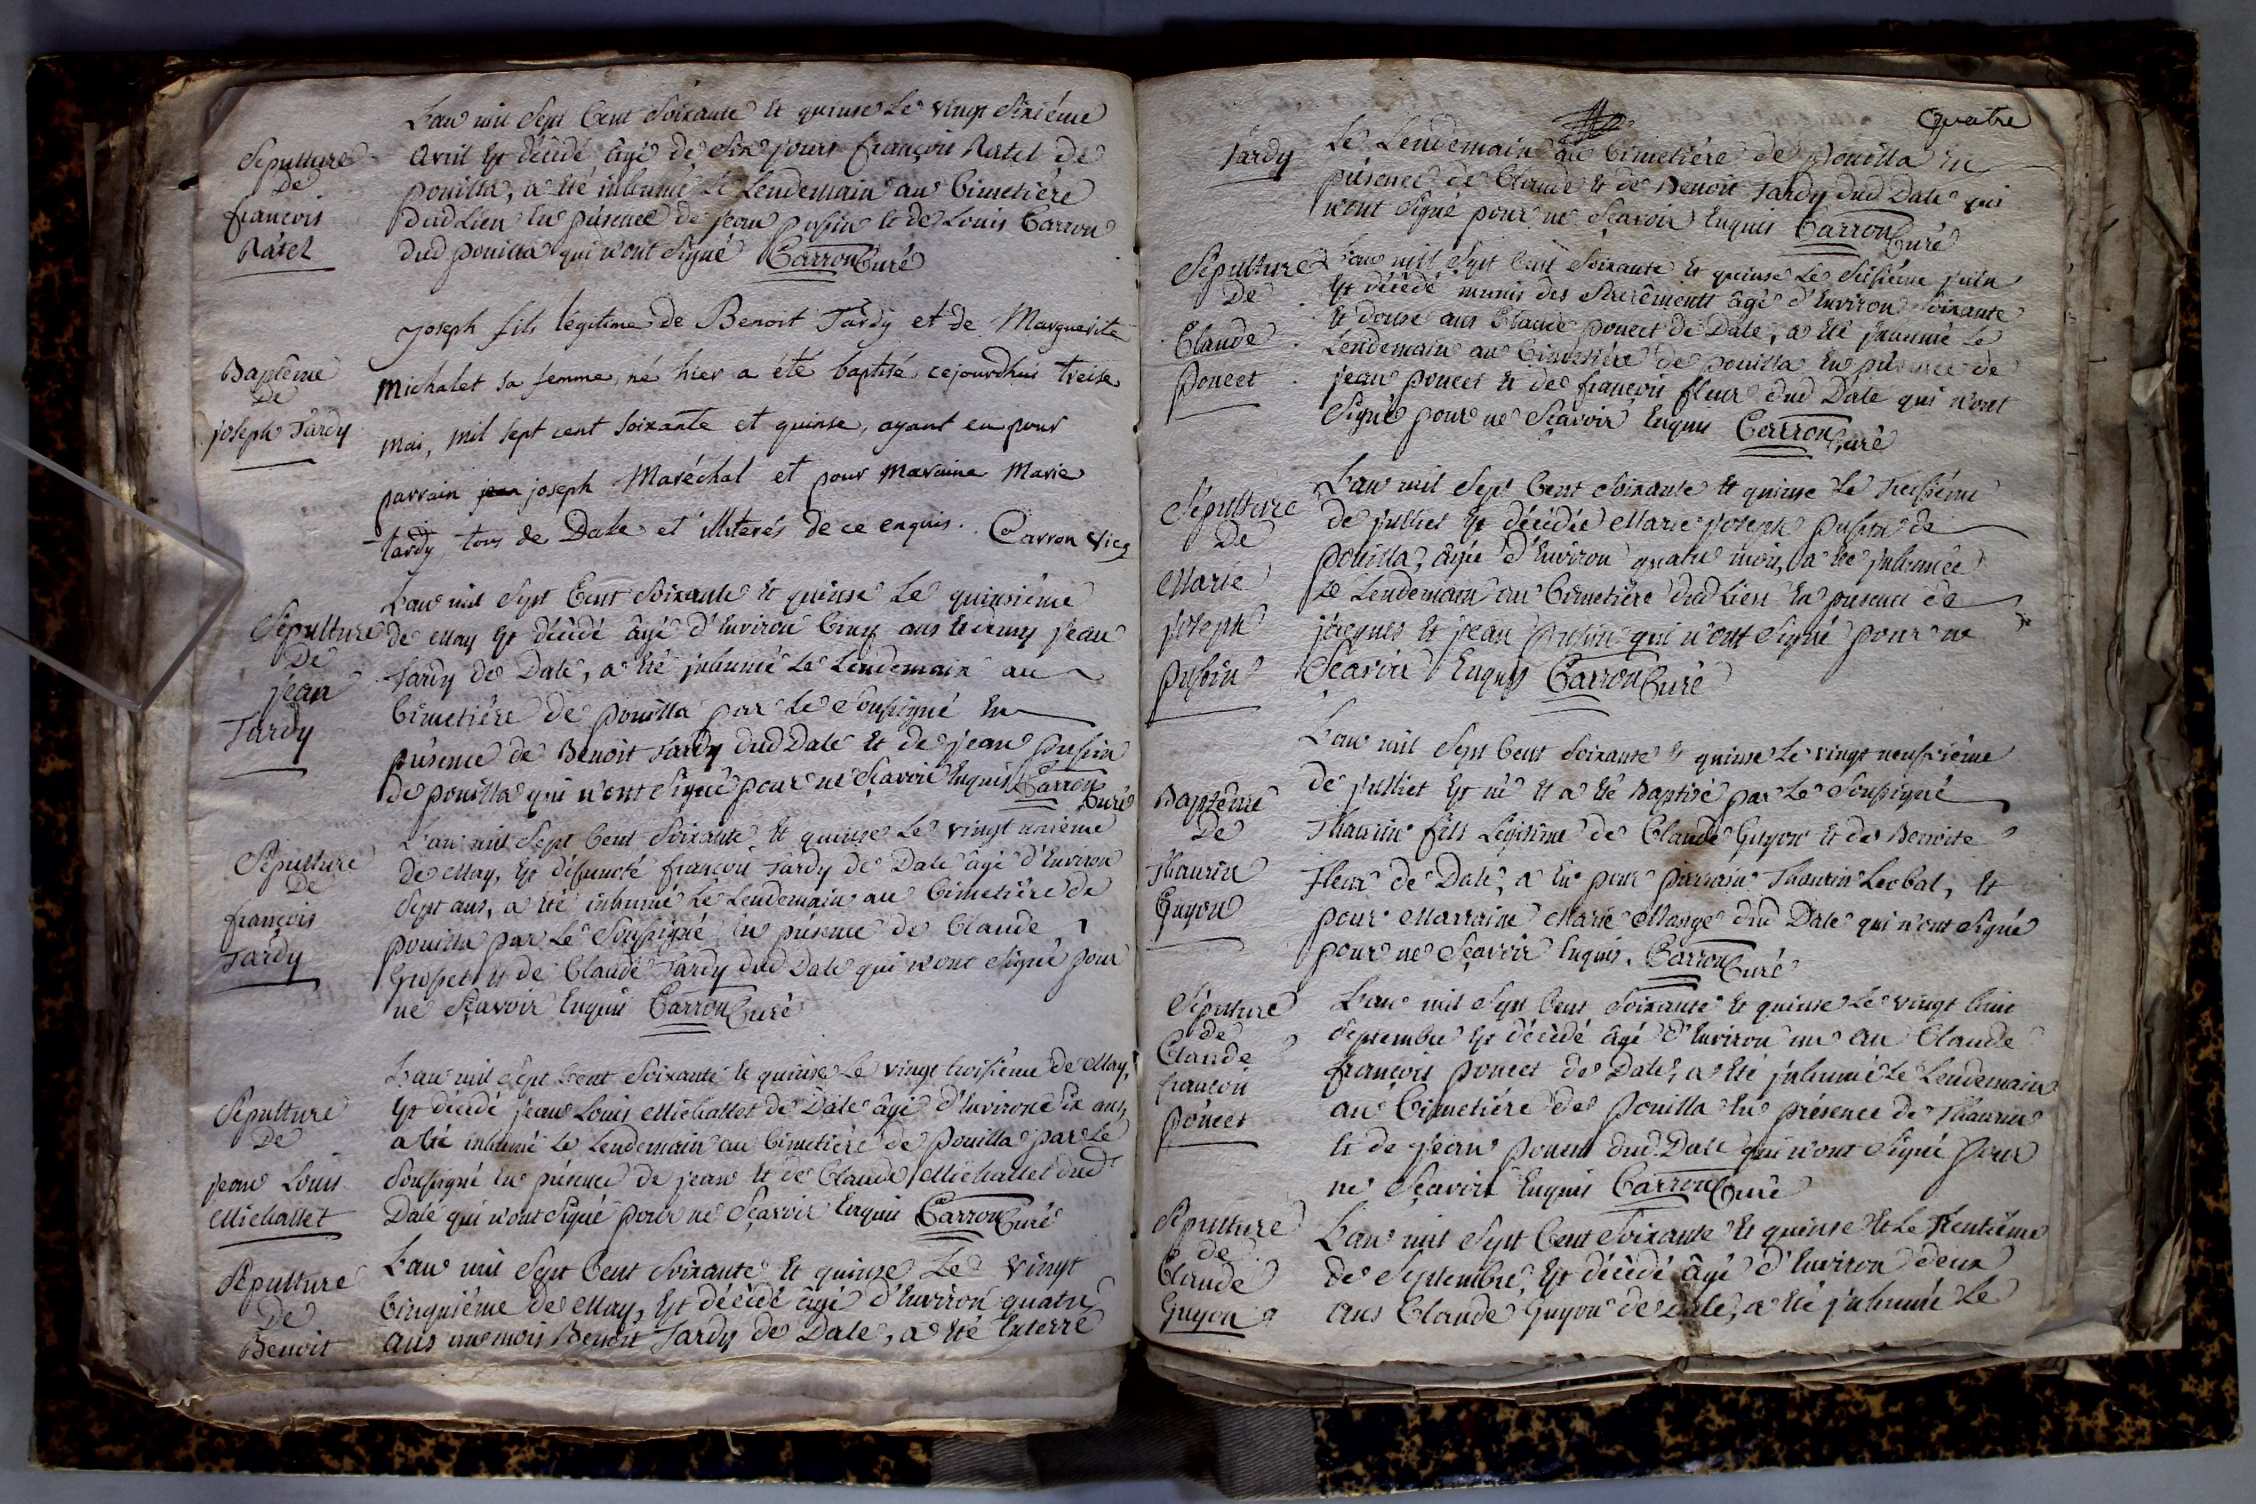 L'an mil Sept Cent Soixante Et quinse Le vingt Sixiéme
Sepulture
de
françois
Ratel
Avril Est décédé âgé de Six jours françois Ratel de
pouilla, a été inhumé Le Lendemain au Cimetiére
dud Lieu En présence de jean pusin Et de Louis Carron
dud pouilla qui n'ont Signé Carron Curé
Baptême
De
joseph Tardy
joseph fils légitime de Benoit Tardy et de Marguerite
Michalet sa femme, né hier a été baptisé cejourdhui treise
mai, mil sept cent soixante et quinse, ayant eu pour
parrain joseph Maréchal et pour Maraine Marie
tardy tous de Dale et illiterés de ce enquis. Carron Vicr
Sépulture
De
jean
Tardy
L'an mil Sept Cent Soixante Et quinse Le quinsiéme
de May Est décédé âgé d'Environ Cinq ans Et demy jean
Tardy de Dale, a Eté jnhumé Le Lendemain au
Cimetiére de pouilla par Le Soussigné En
présence de Benoit Tardy dud Dale Et de jean pussin
de pouilla qui n'ont Signé pour ne Sçavoir Enquis Carron
Curé
Sépulture
De
françois
Tardy
L'an mil Sept Cent Soixante Et quinse Le vingt uniéme
de May, Est défuncté françois Tardy de Dale âgé d'Environ
Sept ans, a Eté inhumé Le Lendemain au Cimetiére de
pouilla par Le Soussigné En présence de Claude
et de Claude Tardy dud Dale qui n'ont Signé pour
ne Sçavoir Enquis Carron Curé
Sépulture
De
jean Louis
Michallet
L'an mil Sept Cent Soixante Et quinse Le vingt troisiéme de May,
Est décédé jean Louis Michallet de Dale âgé d'Environ Six ans,
a Eté inhumé Le Lendemain au Cimetiére de pouilla par Le
Soussigné En présence de jean Et de Claude Michallet dud
Dale qui n'ont Signé pour ne Sçavoir Enquis Carron Curé
Sépulture
De
Benoit
L'an mil Sept Cent Soixante Et quinse Le vingt
Cinquiéme de May, Est décédé âgé d'Environ quatre
ans un mois Benoit Tardy de Dale, a Eté Enterré
quatre
Tardy
Le Lendemain au Cimetiére de pouilla En
présence de Claude Et de Benoit Tardy dud Dale qui
n'ont Signé pour ne Sçavoir Enquis Carron Curé
Sépulture
De
Claude
poncet
L'an mil Sept Cent Soixante Et quinse Le Seisiéme juin
Est décédé munis des Sacrêments âgé d'Environ Soixante
Et douse ans Claude poncet de Dale, a Eté jnhumé Le
Lendemain au Cimetiére de pouilla En présence de
jean poncet Et de françois fleur dud Dale qui n'ont
Signé pour ne Sçavoir Enquis Carron Curé
Sépulture
De
Marie
joseph
pussin
L'an mil Sept Cent Soixante Et quinse Le Treisiéme
de juillet Est décédée Marie joseph pusin de
pouilla, âgée d'Environ quatre mois, a Eté jnhumée
Le Lendemain au Cimetiére dud Lieu En présence de
jacques Et jean pussin qui n'ont Signé pour ne
Sçavoir Enquis Carron Curé
Baptême
De
Thaurin
Guyon
L'an mil Sept Cent Soixante Et quinse Le vingt neufviéme
de juilliet Est né Et a Eté Baptisé par Le Soussigné
Thaurin fils Légitime de Claude Guyon Et de Benoite
fleur de Dale, a Eu pour parrain Thaurin Lerbal, Et
pour Marraine Marie Mange dud Dale qui n'ont Signé
pour ne Sçavoir Enquis. Carron Curé
Sépulture
de
Claude
françois
poncet
L'an mil Sept Cent Soixante Et quinse Le vingt huit
Septembre Est décédé âgé d'Environ un an Claude
françois poncet de Dale, a Eté jnhumé Le Lendemain
au Cimetiére de pouilla En présence de Thaurin
Et de jean poncet dud Dale qui n'ont Signé pour
ne Sçavoir Enquis Carron Curé
Sépulture
de
Claude
Guyon
L'an mil Sept Cent Soixante Et quinse Et Le Trentiéme
de Septembre, Est décédé âgé d'Environ deux
ans Claude Guyon de Dale, a Eté jnhumé Le